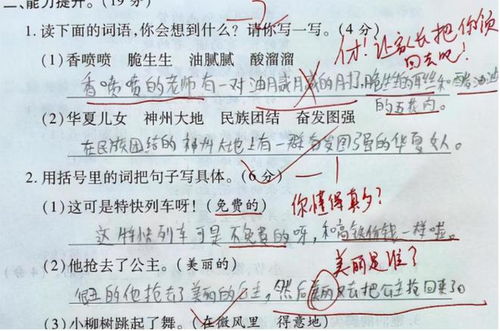 二、能力提升。(19分)
1. 读下面的词语,你会想到什么?请你写一写。(4分)
(1)香喷喷 脆生生 油腻腻 酸溜溜
什!让家长把你领回去吧!
香喷喷的老师有一对油腻腻的
(2)华夏儿女 神州大地 民族团结 奋发图强
在民族团结的神州大地上有一群奋发图强的华夏女人。
2. 用括号里的词把句子写具体。(6分)
(1)这可是特快列车呀!(免费的)
你懂得真多?
这特快列车可是不免费的呀,和高铁价钱一样啦。
(2)他抢去了公主。(美丽的)
美丽是谁?
的他抢去了美丽的公主,然后美丽又去把公主抢回来了。
(3)小柳树跳起了舞。(在微风里 得意地)